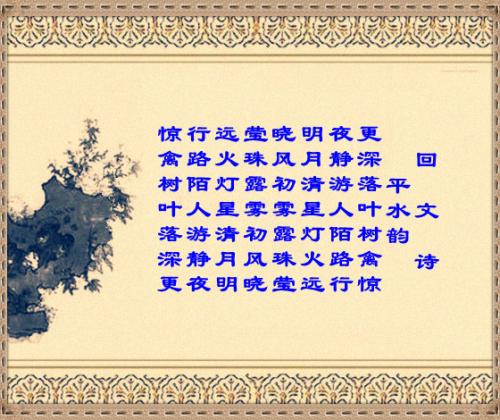 回文诗
平水韵
更深落叶树禽惊
夜静游人陌路行
明月清星灯火远
晓风初雾露珠莹
莹珠露雾初风晓
远火灯星清月明
行路陌人游静夜
惊禽树叶落深更